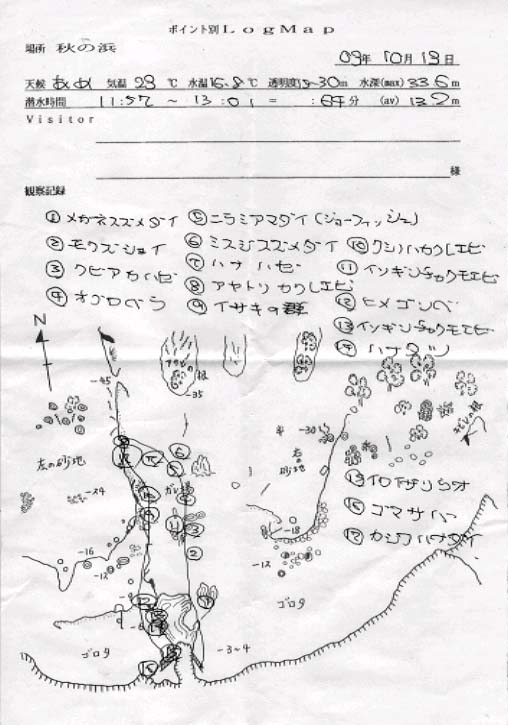 ポイント別LogMap
場所 秋の浜
09年 10月 19日
天候 あめ 気温 23 ℃ 水温 16.8 ℃ 透明度 15~30m 水深(max) 33.6m
潜水時間 11:57 ~ 13:01 = :64分 (av) 13.2m
Visitor
様
観察記録
① メガネスズメダイ ⑤ ニラミアマダイ (ジョーフィッシュ)
② モクズショイ ⑥ ミスジスズメダイ ⑩ クシノハカクレエビ
③ クビアカハゼ ⑦ ハナハゼ ⑪ イソギンチャクモエビ
④ オグロベラ ⑧ アヤトリカクレエビ ⑫ ヒメゴンベ
⑨ イサキの群 ⑬ イソギンチャクモエビ
⑭ ハナダイ
N
-45
根
-35
-30
左の砂地
⑥
右の砂地
⑮ イロイザリウオ
-24
ガレ
④
⑪ ③
-18
⑯ ゴマサバ
②
⑰ カシワハナダイ
-16
-12
-12
ゴロタ
ゴロタ
-3~4